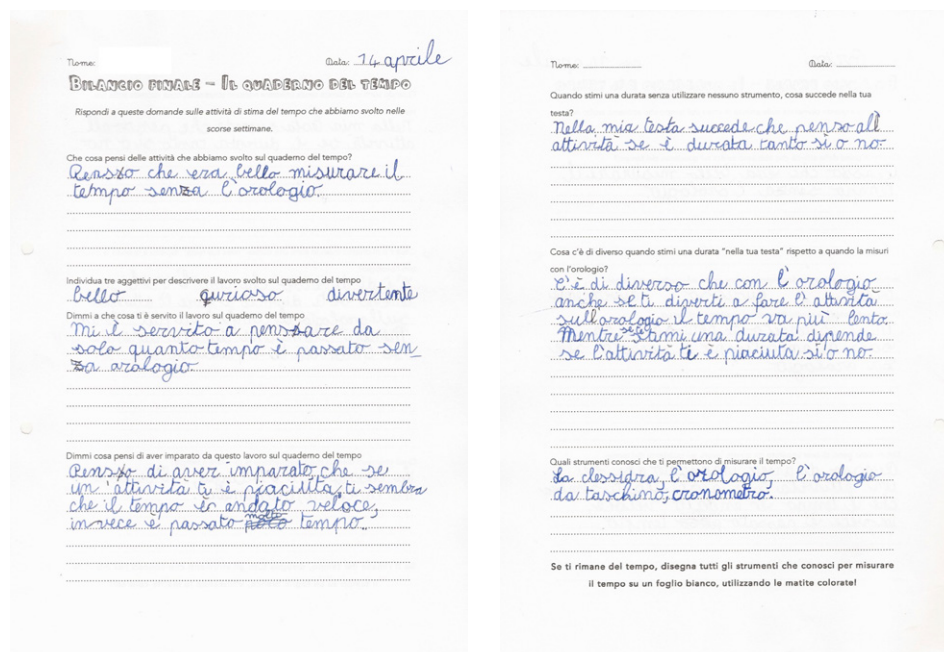 Nome:
Data: 14 aprile
BILANCIO FINALE – IL QUADERNO DEL TEMPO
Rispondi a queste domande sulle attività di stima del tempo che abbiamo svolto nelle
scorse settimane.
Che cosa pensi delle attività che abbiamo svolto sul quaderno del tempo?
Penso che era bello misurare il
tempo senza l'orologio.
Individua tre aggettivi per descrivere il lavoro svolto sul quaderno del tempo
bello qurioso divertente
Dimmi a che cosa ti è servito il lavoro sul quaderno del tempo
Mi è servito a pensare da
solo quanto tempo è passato sen_
za orologio
Dimmi cosa pensi di aver imparato da questo lavoro sul quaderno del tempo
Penso di aver imparato che se
un'attività ti è piaciuta, ti sembra
che il tempo è andato veloce,
invece è passato molto tempo.
Nome:
Data:
Quando stimi una durata senza utilizzare nessuno strumento, cosa succede nella tua
testa?
Nella mia testa succede che penso all
attività se è durata tanto si o no.
Cosa c'è di diverso quando stimi una durata "nella tua testa" rispetto a quando la misuri
con l'orologio?
C'è di diverso che con l'orologio
anche se ti diverti a fare l'attività
sull'orologio il tempo va più lento.
Mentre se te stimi una durata dipende
se l'attività ti è piaciuta si o no.
Quali strumenti conosci che ti permettono di misurare il tempo?
La clessidra, l'orologio, l'orologio
da taschino, cronometro.
Se ti rimane del tempo, disegna tutti gli strumenti che conosci per misurare
il tempo su un foglio bianco, utilizzando le matite colorate!